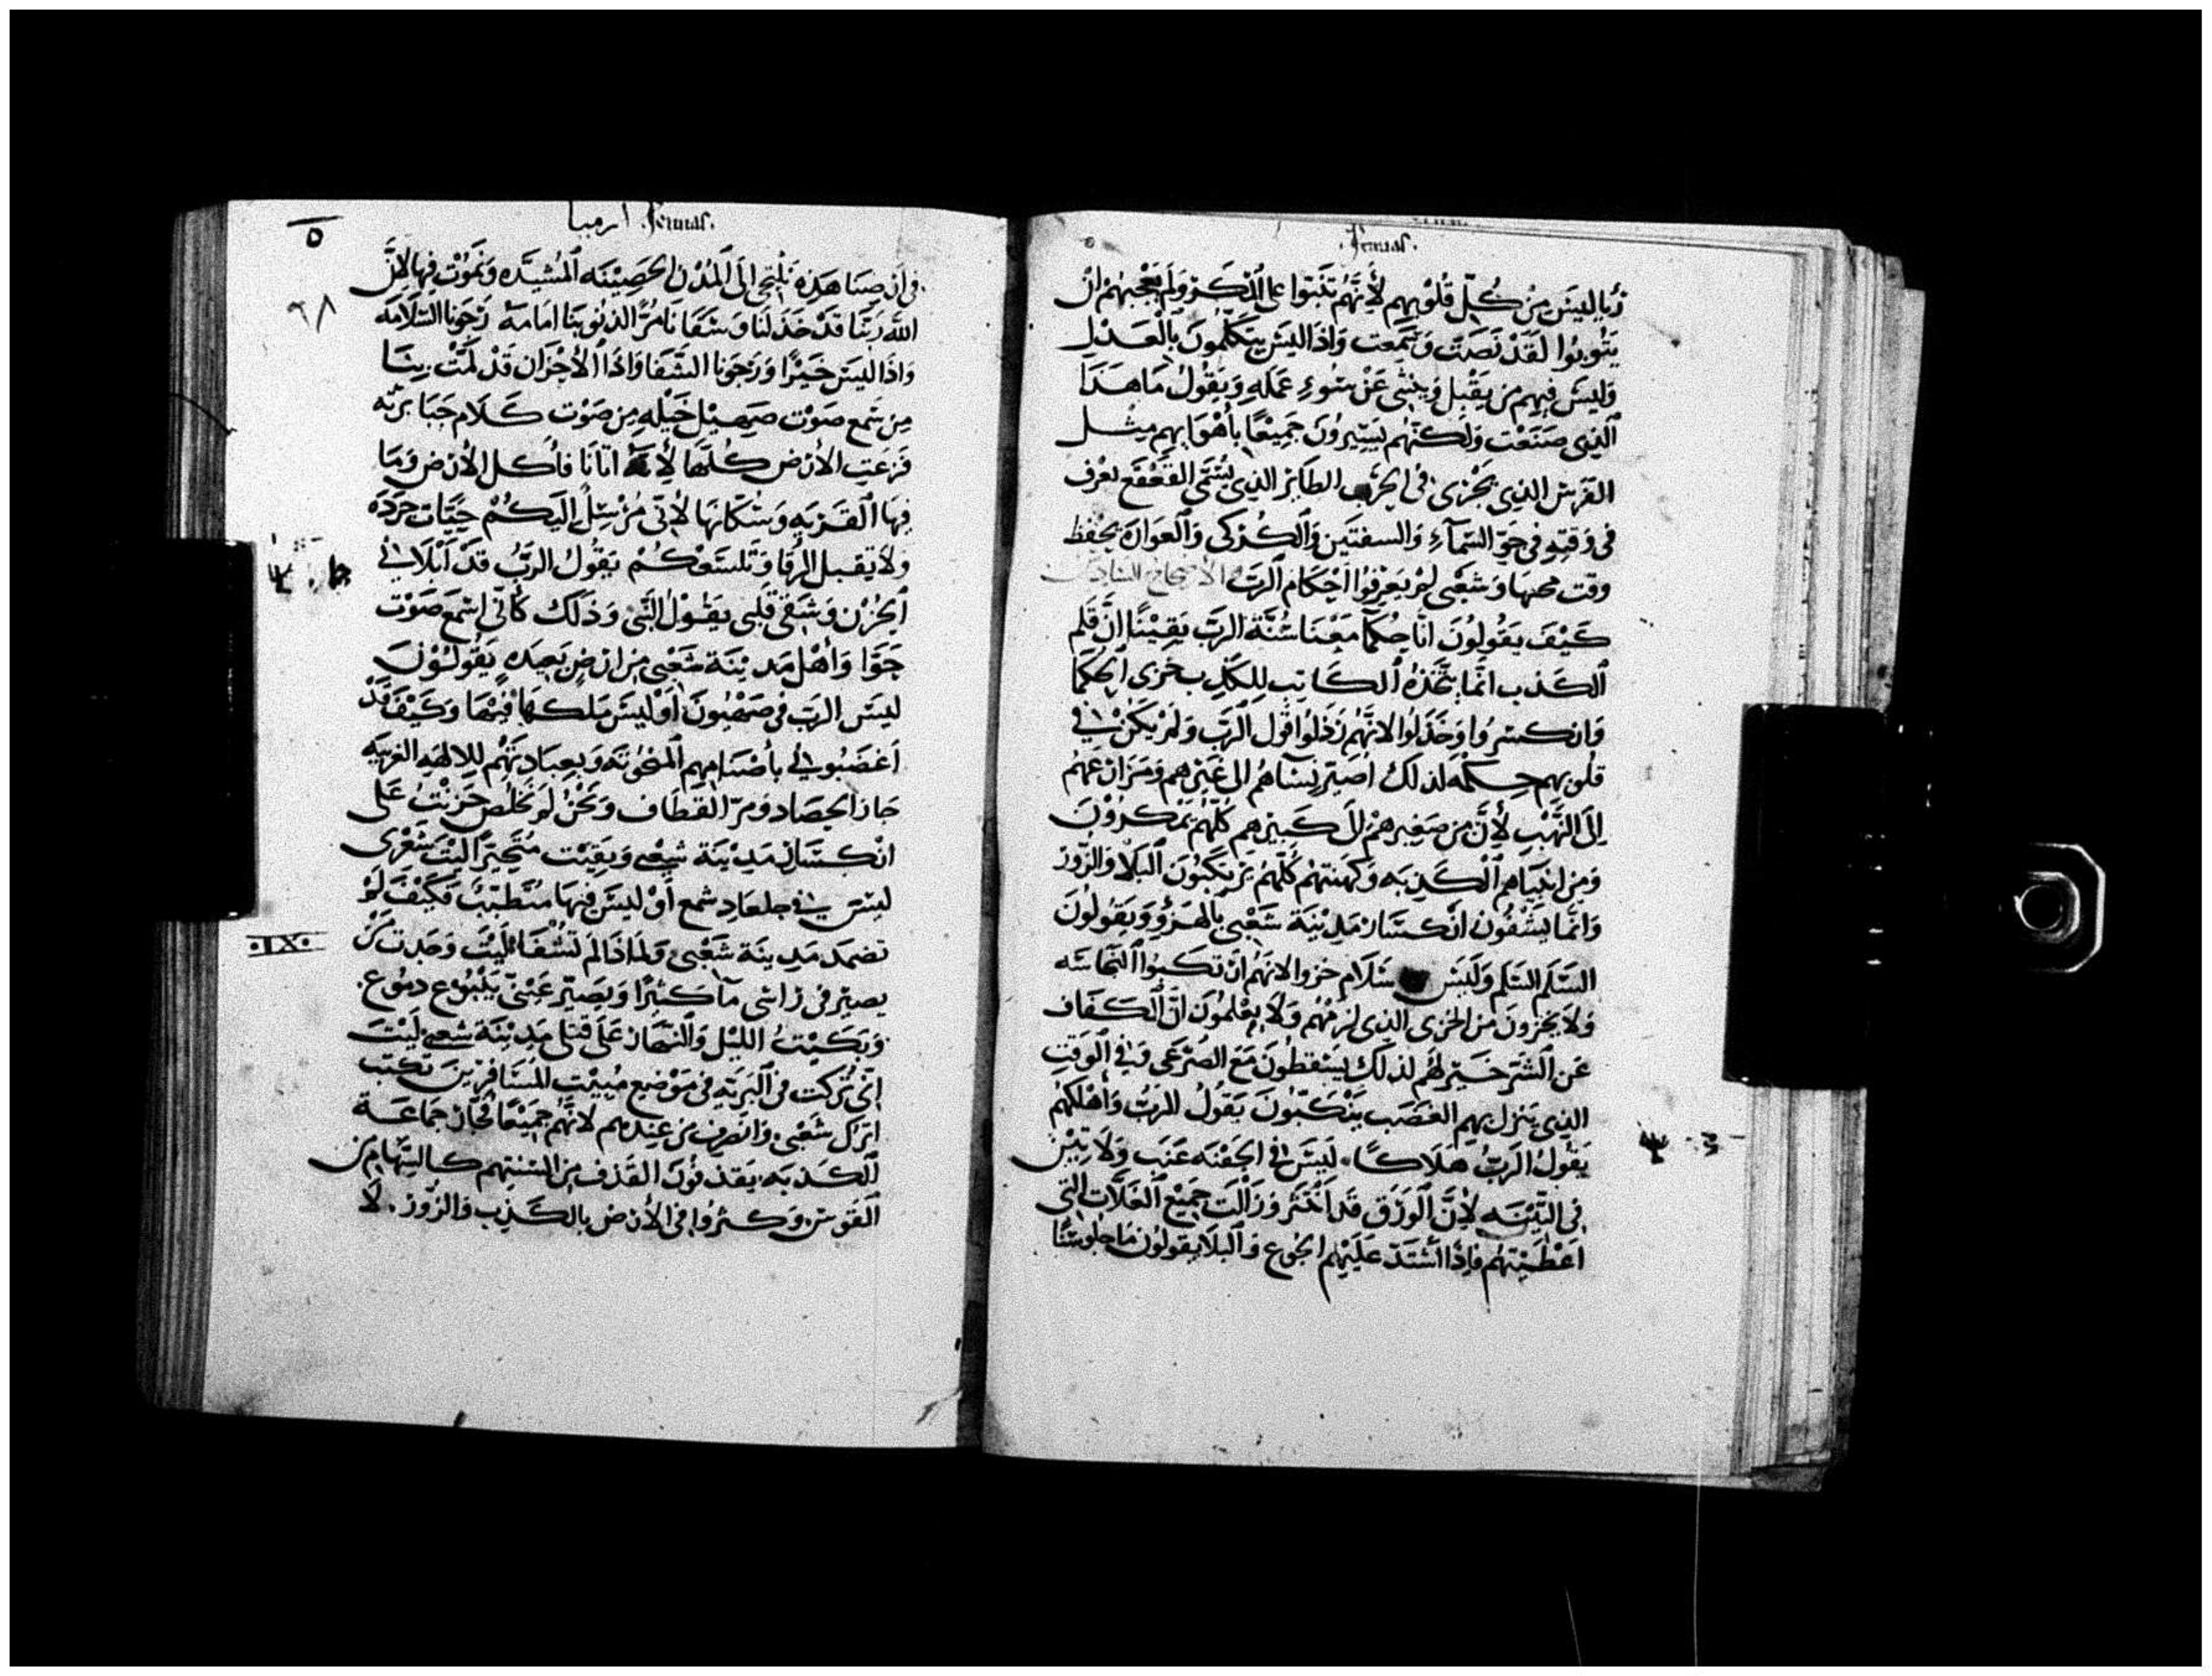 .Jeremias.
زبابليس من كل قلوبهم لأنهم تثبتوا على المكر ولم يعجبهم ان
يتوبوا لقد نصت وسمعت واذا ليس يتكلمون بالعدل
وليس فيهم من يقبل وينثنى عن سوء عمله ويقول ما هذا
الذى صنعت ولكنهم يسيرون جميعا بأهوايهم مثل
الفرس الذى يجرى فى الحرب الطاير الذى يسمى القعقع يعرف
فى وقته فى جو السماء والسفنين والكركى والعواره يحفظ
وقت محيها وشعبى لم يعرفوا احكام الرب
كيف يقولون انا حكما معنا سنة الرب يقينا ان قلم
الكذب انما يتخذه الكاتب للكذب خزى الحكما
وانكسروا وخذلوا لانهم رذلوا قول الرب ولم يكن فى
قلوبهم حكمه لذلك اصير نساهم الى غيرهم ومزارعهم
الى النهب لأن من صغيرهم الى كبيرهم كلهم يمكرون
ومن انبياهم الكذبه وكهنتهم كلهم يرتكبون البلا والزور
وانما يشفون انكسار مدينة شعبى بالهزؤ ويقولون
السلم السلم وليس سلام خزوا لانهم ارتكبوا النجاسه
ولا يخزون من الخزى الذى لزمهم ولا يعلمون ان الكفاف
عن الشر خير لهم لذلك يسقطون مع الصرعى وفى الوقت
الذى ينزل بهم الغضب ينكبون يقول الرب واهلكهم
يقول الرب هلاكا. ليس فى الجفنه عنب ولا تين
فى التينه لأن الورق قد انتثر وزالت جميع الغلات التى
اعطيتهم فاذا اشتد عليهم الجوع والبلا يقولون ما جلوسنا
ارميا .Jeremias.
٩٨
فى ارضنا هذه نلتجى الى المدن الحصينه المشيده ونموت فيها لان
الله ربنا قد خذلنا وسقانا مرا لذنوبنا امامه رجونا السلامه
واذا ليس خيرا ورجونا الشفا واذا الاحزان قد لمت بنا
من سمع صوت صهيل خيله من صوت كلام جبابرته
فزعت الأرض كلها لأنه اتانا فأكل الأرض وما
فيها القريه وسكانها لأنى مرسل اليكم حيات حرده
ولا يقبل الرقا وتلسعكم يقول الرب قد ابلانى
الحزن وشقى قلبى يقول النبى وذلك كأنى اسمع صوت
جوا واهل مدينة شعبى من ارض بعيده يقولون
ليس الرب فى صهيون او ليس ملكها فيها وكيف قد
اغضبونى بأصنامهم المنحوته وبعبادتهم للالهه الغريبه
جاز الحصاد ومر القطاف ونحن لم نخلص حزنت على
انكسار مدينة شعبى وبقيت متحيرا ليت شعرى
ليس فى جلعاد شمع او ليس فيها متطبب فكيف لم
.IX.
تضمد مدينة شعبى ولماذا لم تشفا ليت وجدت من
يصير فى راسى مآ كثيرا ويصير عينى ينبوع دموع.
وبكيت الليل والنهار على قتلى مدينة شعبى ليت
انى تركت فى البريه فى موضع مبيت للمسافرين كنت
اترك شعبى وانصرف من عندهم لانهم جميعا فجار جماعة
الكذبه يقذفون القذف من السنتهم كالسهام من
القوس. وكثروا فى الأرض بالكذب والزور. لا